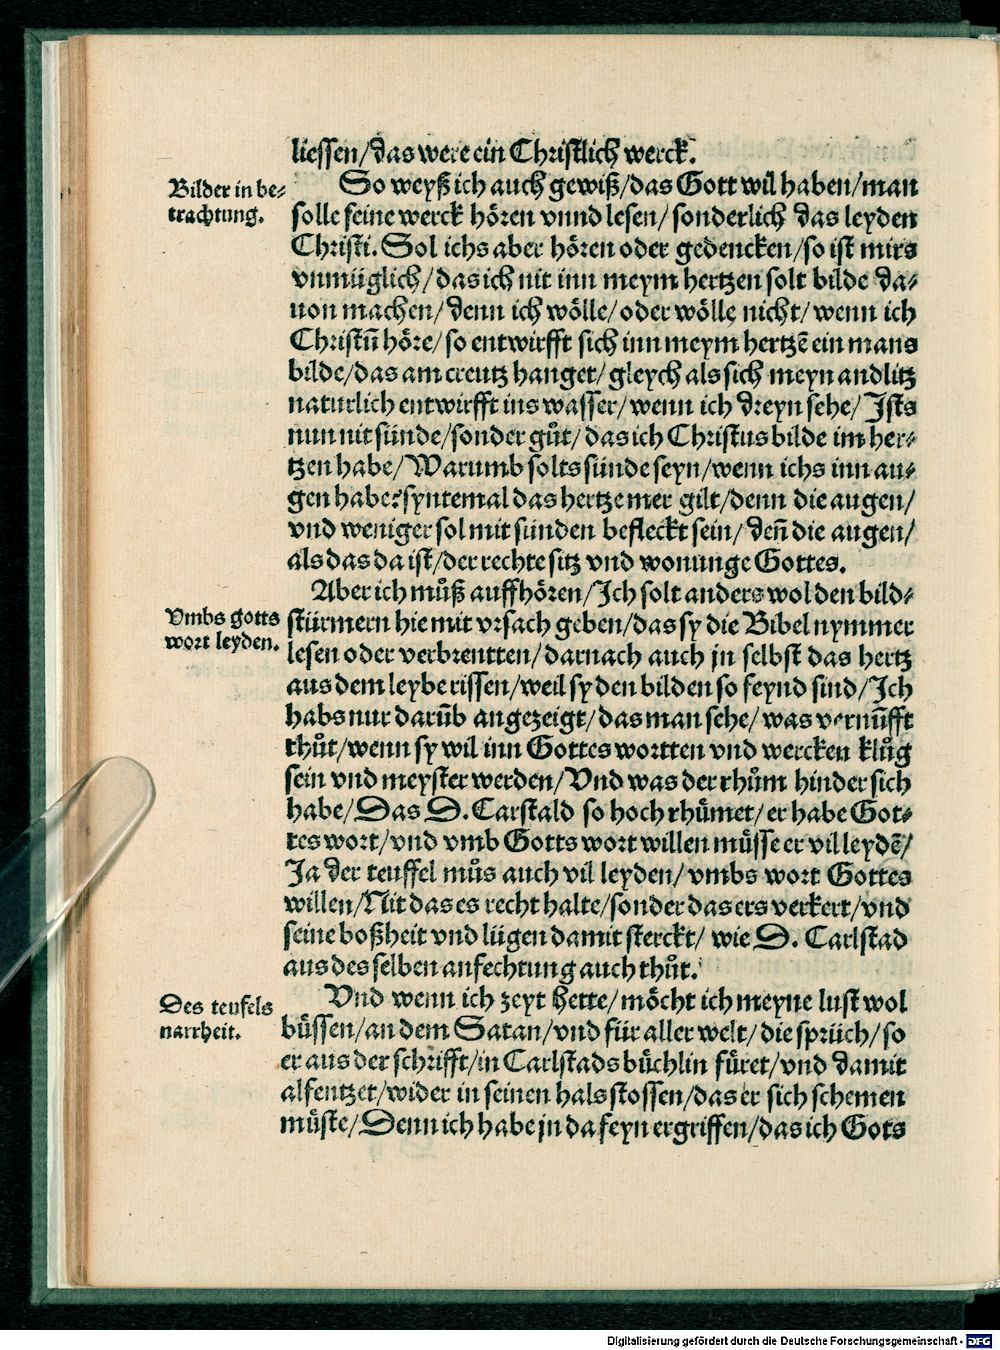 liessen/das were ein Christlich werck.
Bilder in be⸗
trachtung.
So weyß ich auch gewiß/das Gott wil haben/man
solle seine werck hören vnnd lesen/sonderlich das leyden
Christi. Sol ichs aber hören oder gedencken/so ist mirs
vnmüglich/das ich nit inn meym hertzen solt bilde da⸗
uon machen/denn ich wölle/oder wölle nicht/wenn ich
Christū höre/so entwirfft sich inn meym hertzē ein mans
bilde/das am creutz hanget/gleych als sich meyn andlitz
naturlich entwirfft ins wasser/wenn ich dreyn sehe/Ists
nun nit sünde/sonder gůt/das ich Christus bilde im her⸗
tzen habe/Warumb solts sünde seyn/wenn ichs inn au⸗
gen habe? syntemal das hertze mer gilt/denn die augen/
vnd weniger sol mit sünden befleckt sein/deñ die augen/
als das da ist/der rechte sitz vnd wonunge Gottes.
Aber ich můß auffhören/Ich solt anders wol den bild⸗
Vmbs gotts
wort leyden.
stürmern hie mit vrsach geben/das sy die Bibel nymmer
lesen oder verbrentten/darnach auch jn selbst das hertz
aus dem leybe rissen/weil sy den bilden so feynd sind/Ich
habs nur darūb angezeigt/das man sehe/was vernūfft
thůt/wenn sy wil inn Gottes wortten vnd wercken klůg
sein vnd meyster werden/Vnd was der rhům hinder sich
habe/Das D. Carstald so hoch rhümet/er habe Got⸗
tes wort/vnd vmb Gotts wort willen müsse er vil leydē/
Ja der teuffel můs auch vil leyden/vmbs wort Gottes
willen/Nit das es recht halte/sonder das ers verkert/vnd
seine boßheit vnd lügen damit sterckt/wie D. Carlstad
aus des selben anfechtung auch thůt.
Des teufels
narrheit.
Vnd wenn ich zeyt hette/möcht ich meyne lust wol
büssen/an dem Satan/vnd für aller welt/die sprüch/so
er aus der schrifft/in Carlstads büchlin füret/vnd damit
alfentzet/wider in seinen hals stossen/das er sich schemen
müste/Denn ich habe jn da feyn ergriffen/das ich Gots
Digitalisierung gefördert durch die Deutsche Forschungsgemeinschaft - DFG